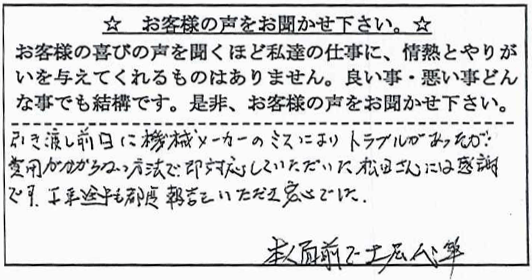 ☆ お客様の声をお聞かせ下さい。☆
お客様の喜びの声を聞くほど私達の仕事に、情熱とやりが
いを与えてくれるものはありません。良い事・悪い事どん
な事でも結構です。是非、お客様の声をお聞かせ下さい。
引き渡し前日に機械メーカーのミスによりトラブルがあったが
費用がかからない方法で即対応していただいた松田さんには感謝
です。工事途中も都度報告をいただき安心でした。
本人直前で土居代筆